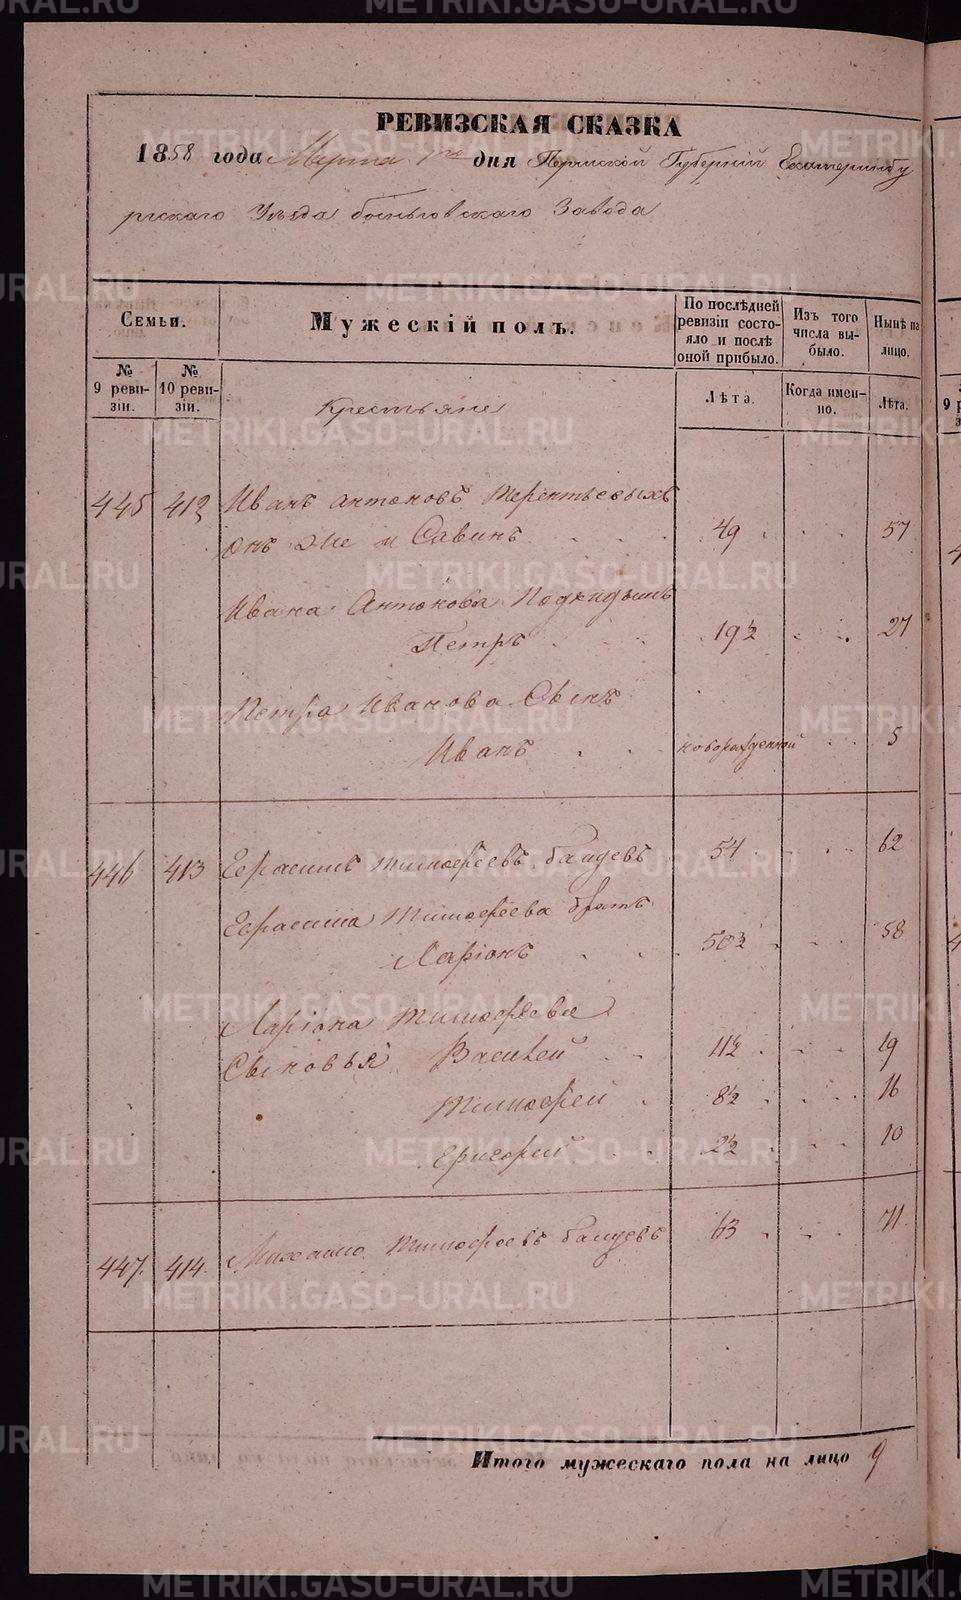 РЕВИЗСКАЯ СКАЗКА
1858 года Марта 1го дня Пермской Губерніи Екатеринбу
ргскаго Уѣзда быньговскаго Завода
Семьи.
Мужескій полъ.
По послѣдней ревизіи состояло и послѣ оной прибыло.
Изъ того числа выбыло.
Нынѣ на лицо.
№ 9 ревизіи.
№ 10 ревизіи.
Лѣта.
Когда именно.
Лѣта.
Крестьяне
445 412 Иванъ Антоновъ Терентьевыхъ
Онъ же и Савинъ 49 57
Ивана Антонова Подкидышъ
Петръ 19½ 27
Петра Иванова Сынъ
Иванъ новорожденной 5
446 413 Герасимъ Тимофеевъ 54 62
Герасима Тимофеева братъ
Ларіонъ 50½ 58
Ларіона Тимофеева
Сыновья Василей 11½ 19
Тимофей 8½ 16
Григорей 2½ 10
447. 414. Михайло Тимофеевъ 63 71.
Итого мужескаго пола на лицо 9
METRIKI.GASO-URAL.RU